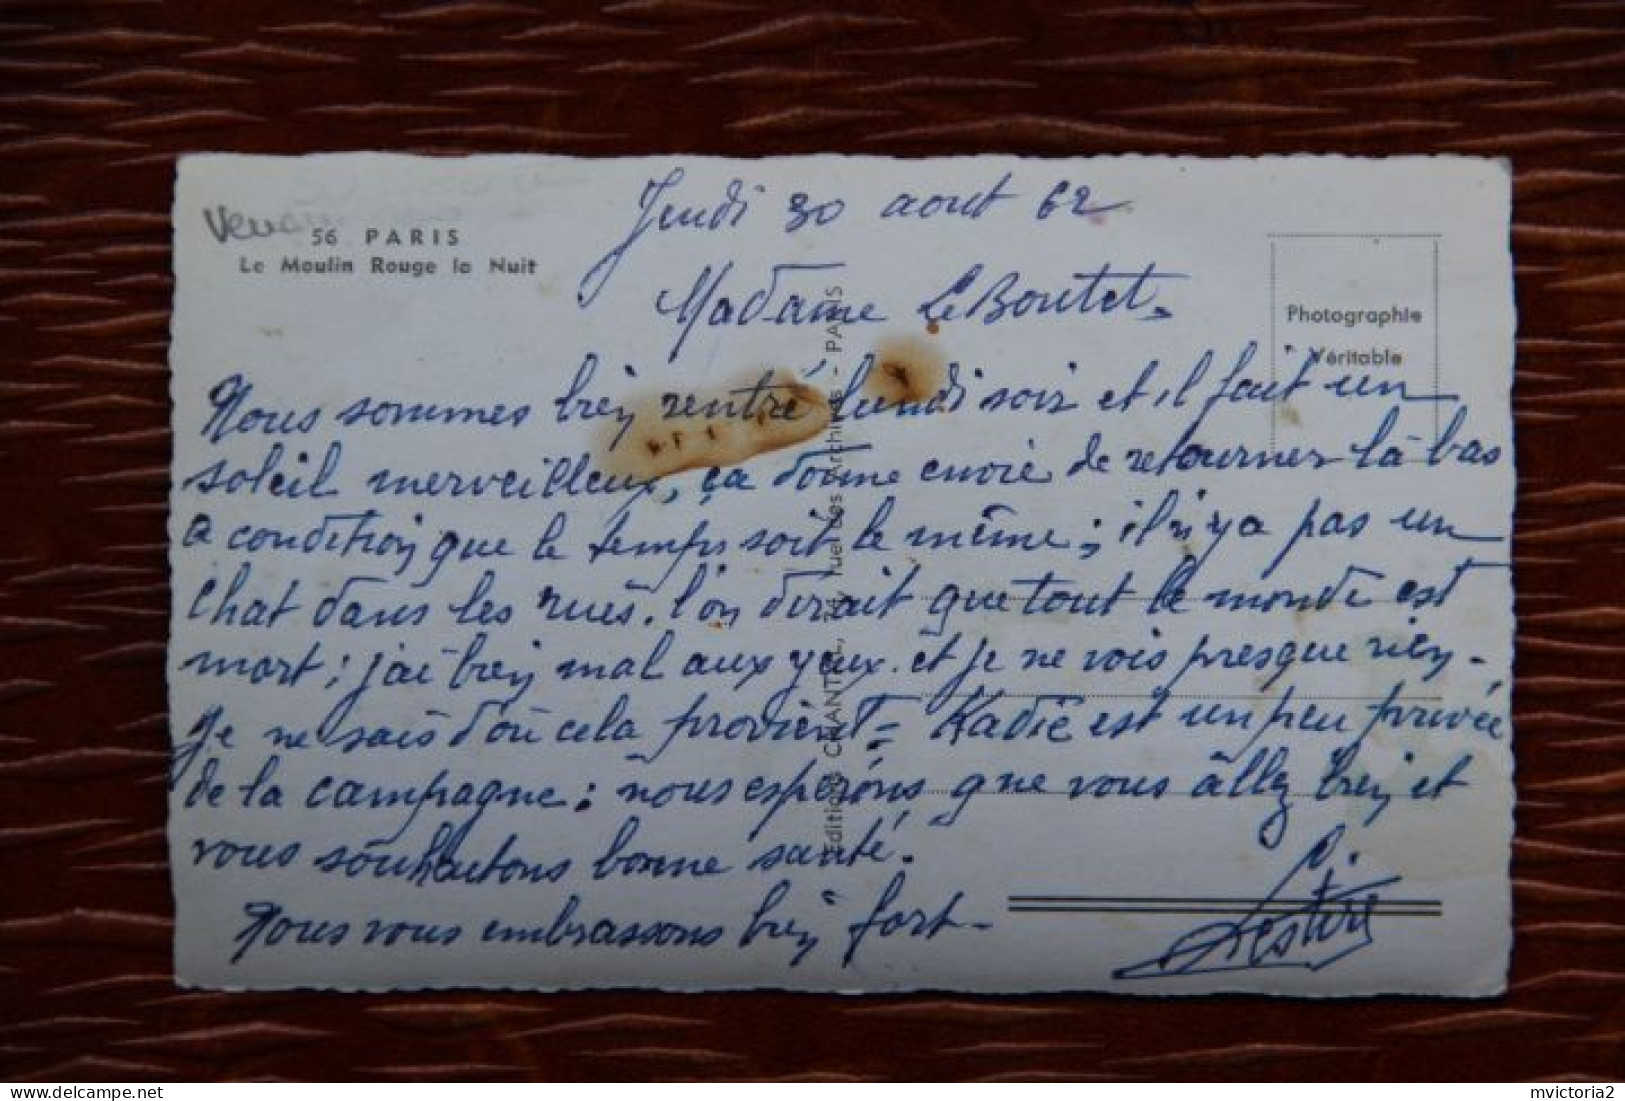 56 PARIS
Le Moulin Rouge la Nuit
Photographie
Véritable
Editions CHANTAL, rue des Archives - PARIS
Jeudi 30 aout 62
Madame Le Boutet.
Nous sommes bien rentré lundi soir et il fait un
soleil merveilleux, ça donne envie de retourner là bas
a condition que le temps soit le même; il n'y a pas un
chat dans les rues. l'on dirait que tout le monde est
mort; j'ai bien mal aux yeux. et je ne vois presque rien.
Je ne sais d'où cela provient = Kadie est un peu privée
de la campagne: nous espérons que vous allez bien et
vous souhaitons bonne santé.
Nous vous embrassons bien fort.
mvictoria2